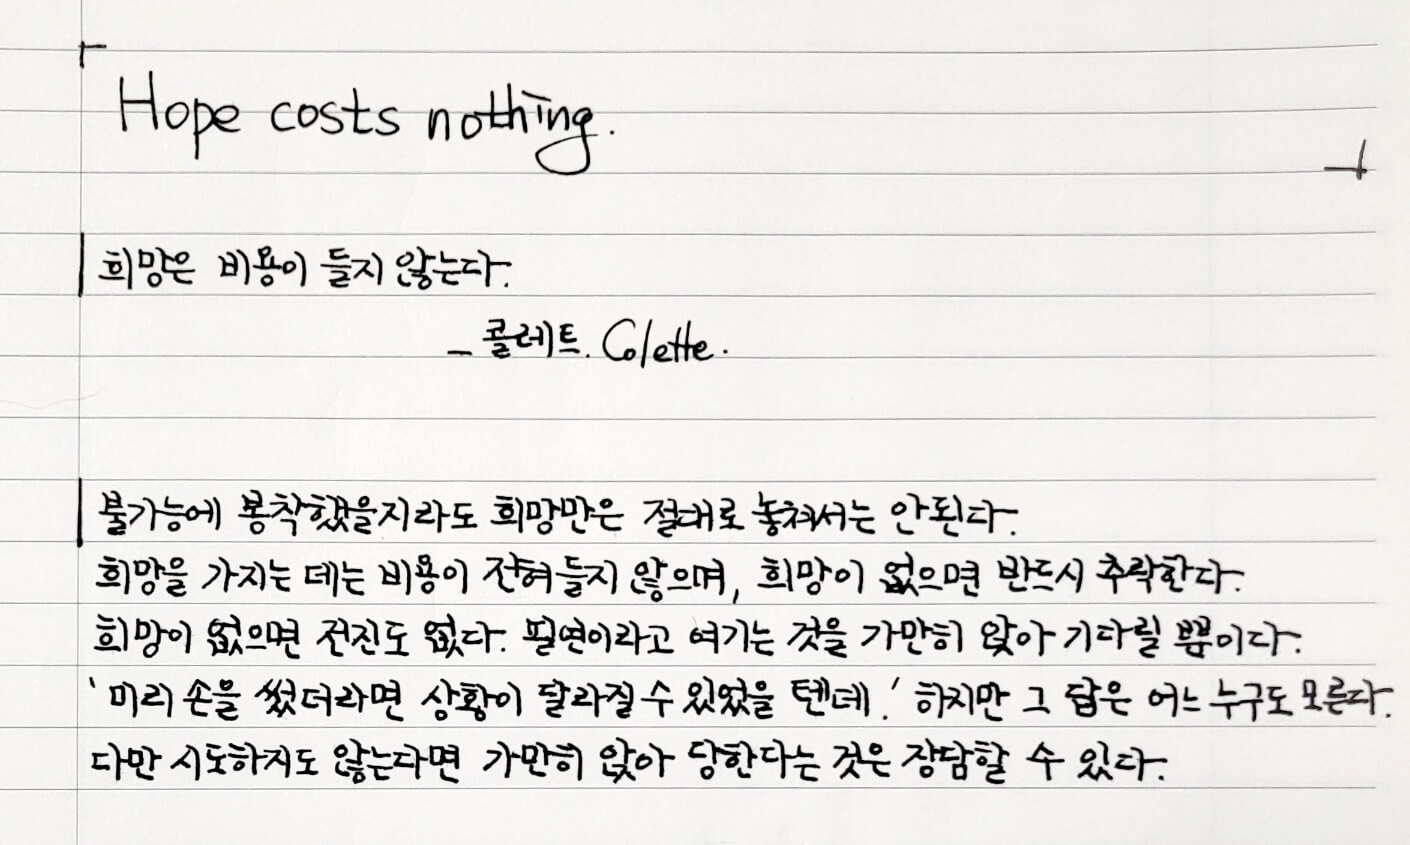 Hope costs nothing.
희망은 비용이 들지 않는다.
- 콜레트. Colette.
불가능에 봉착했을지라도 희망만은 절대로 놓쳐서는 안된다.
희망을 가지는 데는 비용이 전혀 들지 않으며, 희망이 없으면 반드시 추락한다.
희망이 없으면 전진도 없다. 필연이라고 여기는 것을 가만히 앉아 기다릴 뿐이다.
'미리 손을 썼더라면 상황이 달라질 수 있었을 텐데.' 하지만 그 답은 어느 누구도 모른다.
다만 시도하지도 않는다면 가만히 앉아 당한다는 것은 장담할 수 있다.